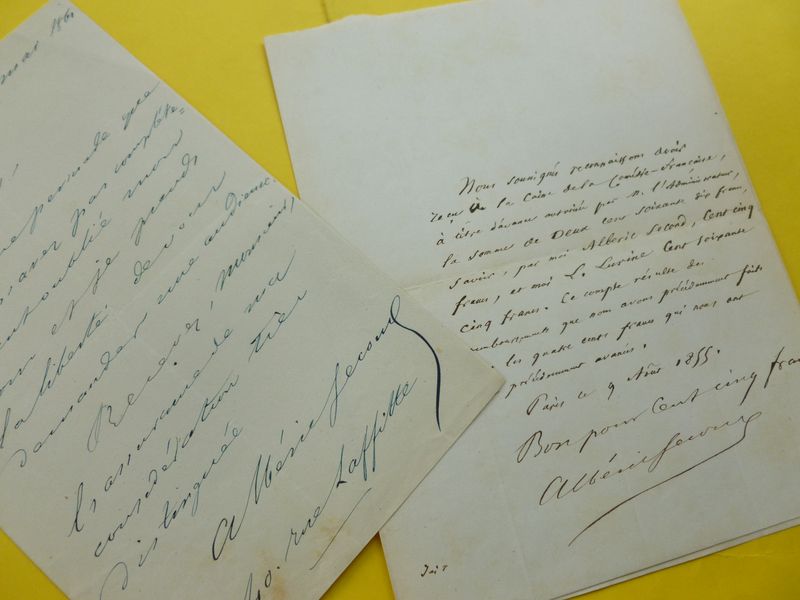 mai 186
me permade que
n'avez pas complète=
ent oublié mon
om et je prends
la liberté de vous
demander une audience.
Recevez, Monsieur,
l'assurance de ma
considération très
distinguée
Albéric Second
40. rue Laffitte
Nous soussignés reconnaissons avoir
reçu de la Caisse de la Comédie-Française,
à titre d'avance autorisée par M. l'Administrateur,
la somme de Deux cent soixante dix francs,
savoir, par moi Albéric Second, Cent cinq
francs, et moi Lurine Cent soixante
cinq francs. Ce compte résulte des
remboursements que nous avons précédemment faits
les quatre cents francs qui nous ont
précédemment avancés.
Paris le 9 Août 1855.
Bon pour Cent cinq fran
Albéric Second